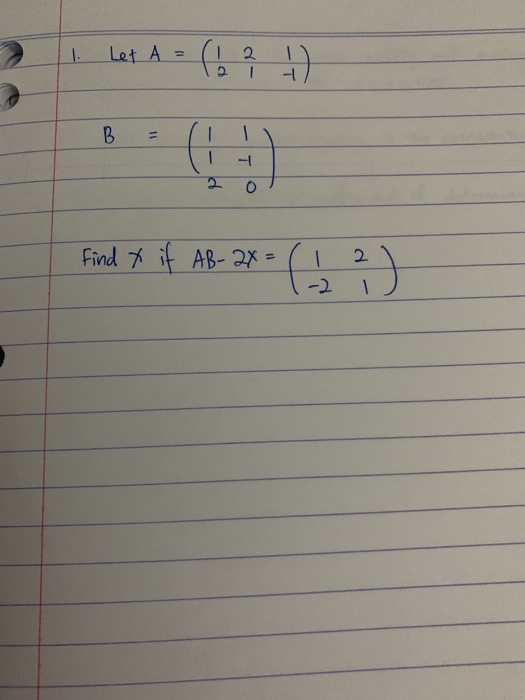 1. Let A = ( 1 2 1
2 1 -1 )
B = ( 1 1
1 -1
2 0 )
Find X if AB - 2X = ( 1 2
-2 1 )